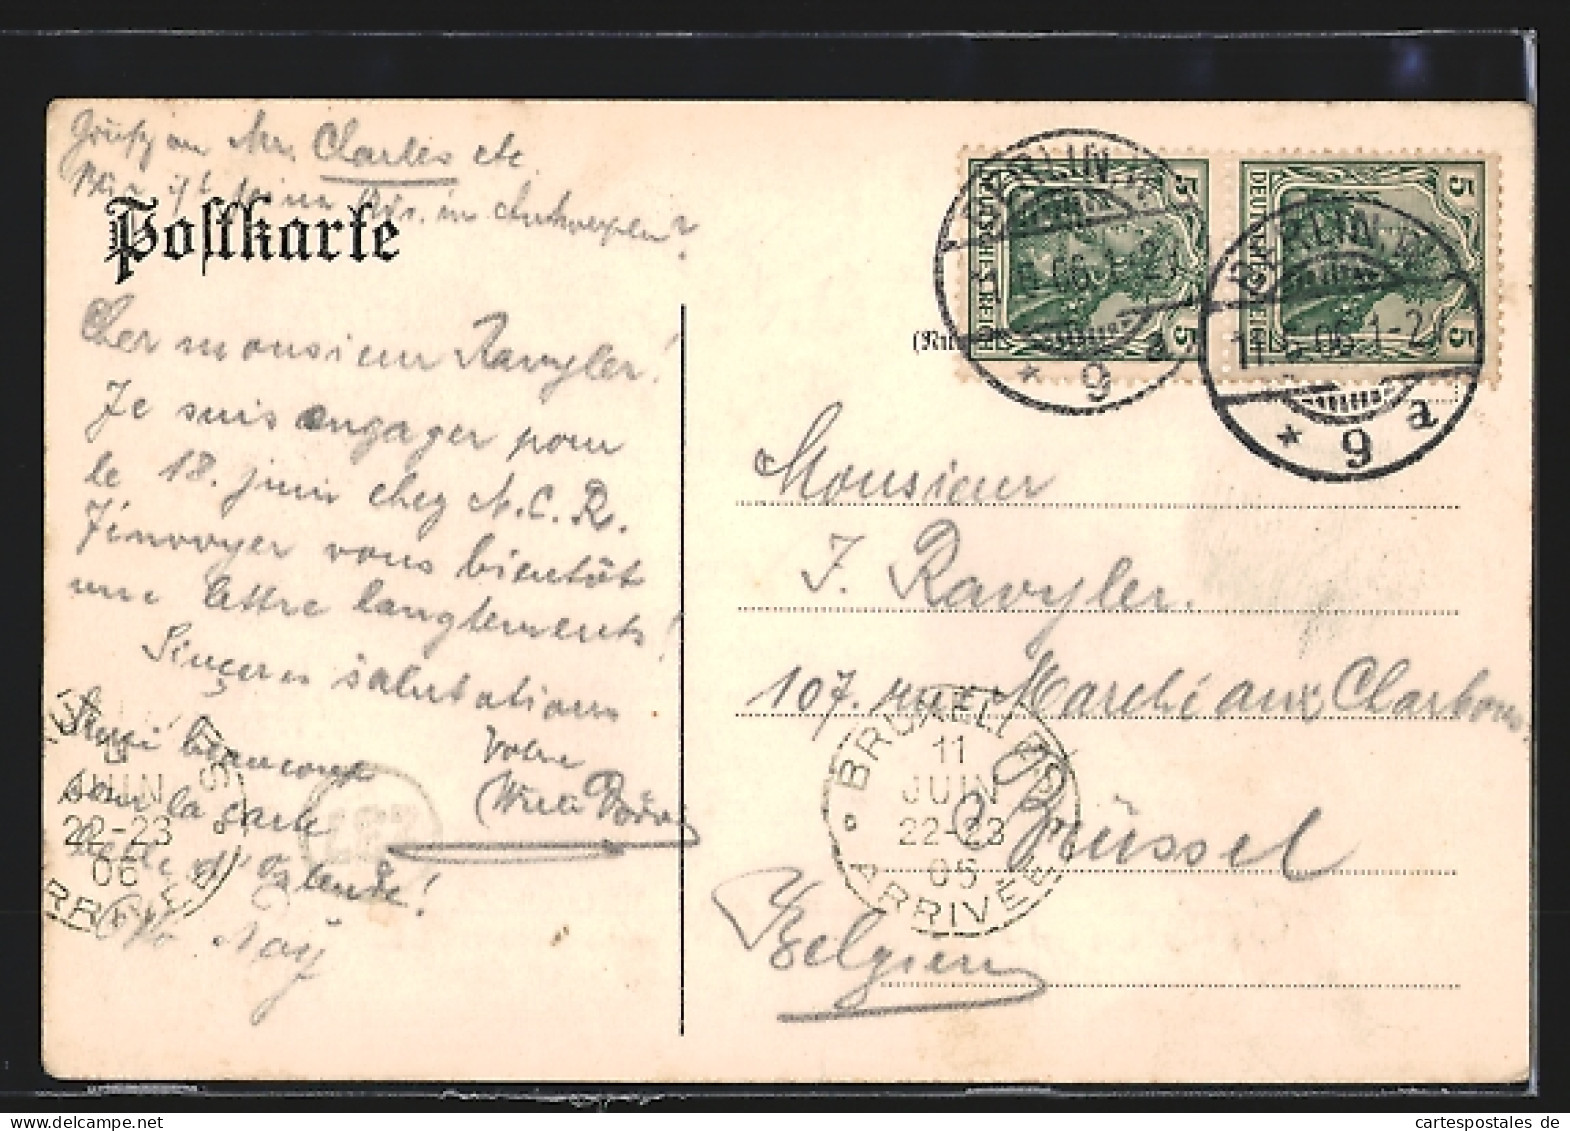 Gruß an Mr. Charles etc
ist in Antwerpen?
Postkarte
Cher monsieur Ravyler!
Je suis engager pour
le 18. juin chez N.C.R.
J'envoyer vous bientôt
une lettre langtements!
Sinçeres salutations
Votre
Willi
Merci beaucoup
pour la carte
d'Ostende!
DEUTSCHES REICH
5
5
DEUTSCHES REICH
5
5
BERLIN.W.
11.6.06.1-2N
* 9 a
BERLIN.W.
11.6.06.1-2N
* 9 a
Monsieur
J. Ravyler.
107. rue Marché aux Charbons
Brüssel
Belgien
BRUXELLES
11
JUIN
22-23
06
ARRIVÉE
JUIN
22-23
06
cartespostales.de